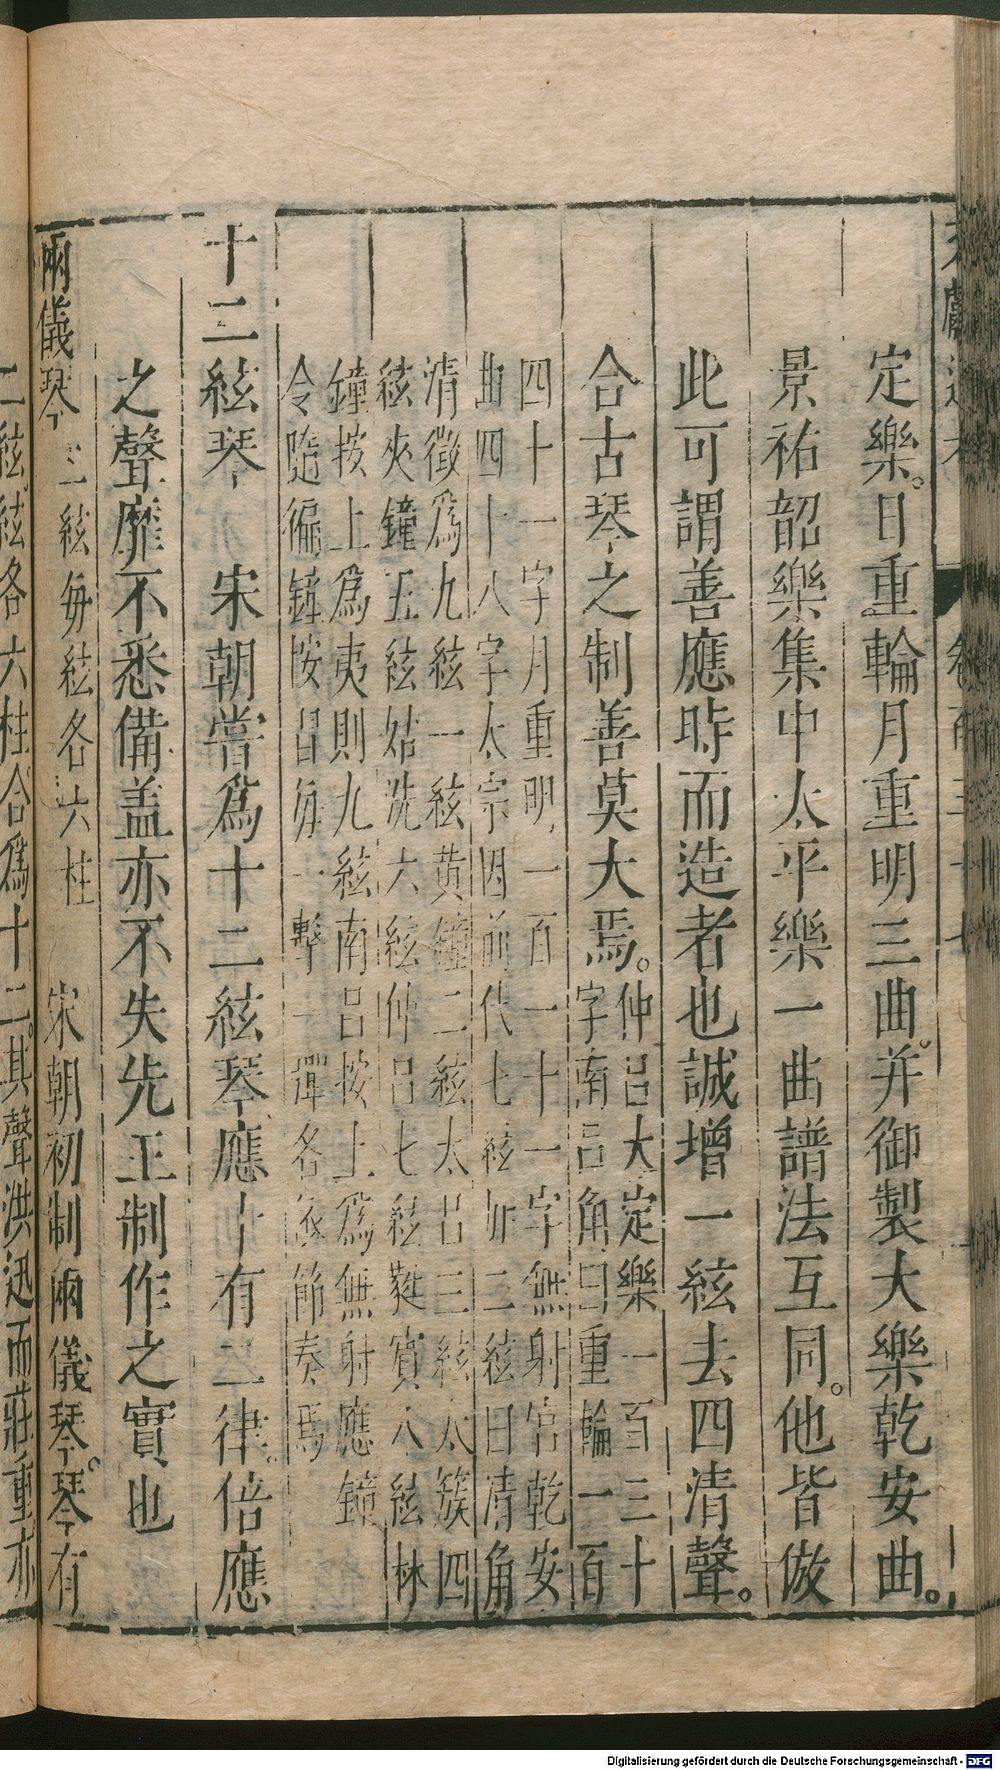 定樂。日重輪月重明三曲。并御製大樂乾安曲。
景祐韶樂集中太平樂一曲譜法互同。他皆倣
此可謂善應時而造者也誠增一絃去四清聲。
合古琴之制善莫大焉。仲呂大定樂一百三十
字南呂角曰重輪一百
四十一字月重明一百一十一字無射宮乾安
曲四十八字太宗因前代七絃加二絃曰清角
清徵爲九絃一絃黃鐘二絃太呂三絃太簇四
絃夾鐘五絃姑洗六絃仲呂七絃蕤賓八絃林
鐘按上爲夷則九絃南呂按上爲無射應鐘
令隨編鐘按習每一擊一彈各依節奏焉
十二絃琴 宋朝嘗爲十二絃琴應十有二律。倍應
之聲靡不悉備盖亦不失先王制作之實也
兩儀琴 二絃每絃各六柱 宋朝初制兩儀琴。琴有
二絃絃各六柱合爲十二。其聲洪迅而莊重亦
Digitalisierung gefördert durch die Deutsche Forschungsgemeinschaft - DFG